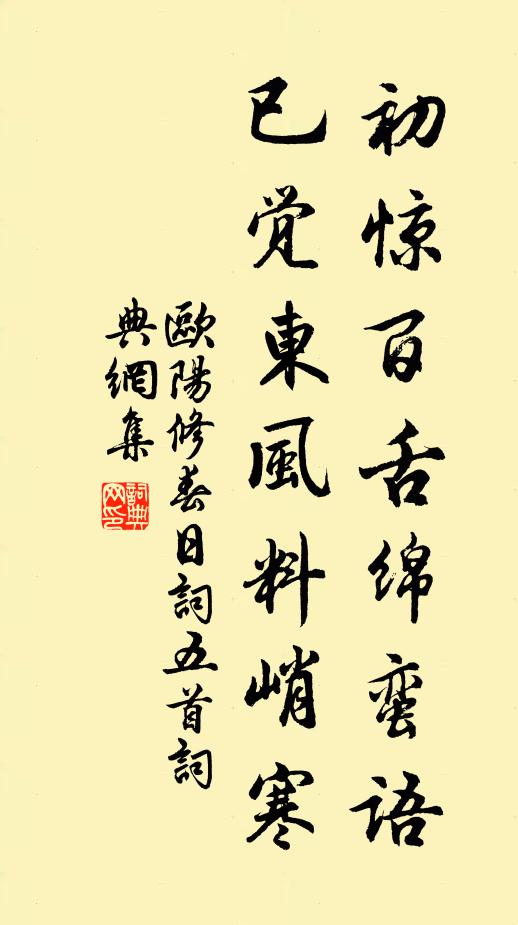 初惊百舌绵蛮语
已觉東風料峭寒
歐陽修春日詞五首詞
典網集
詞典网印